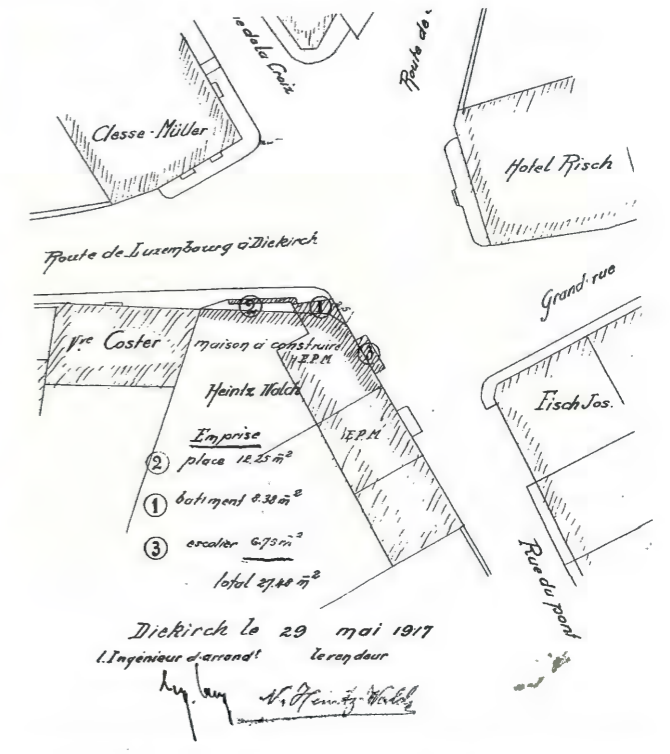 ie de la Croix
Route de
Clesse-Müller
Hotel Risch
Route de Luxembourg à Diekirch
Grand-rue
② ① 2.5
Vve Coster
maison à construire
E.P.M
③
Heintz Walch
Fisch Jos.
E.P.M
Emprise
② place 12.25 m²
① batiment 8.38 m²
③ escalier 6.73 m²
total 27.48 m²
Rue du pont
Diekirch le 29 mai 1917
l.Ingénieur d'arrondt le vendeur
N. Heintz-Walch